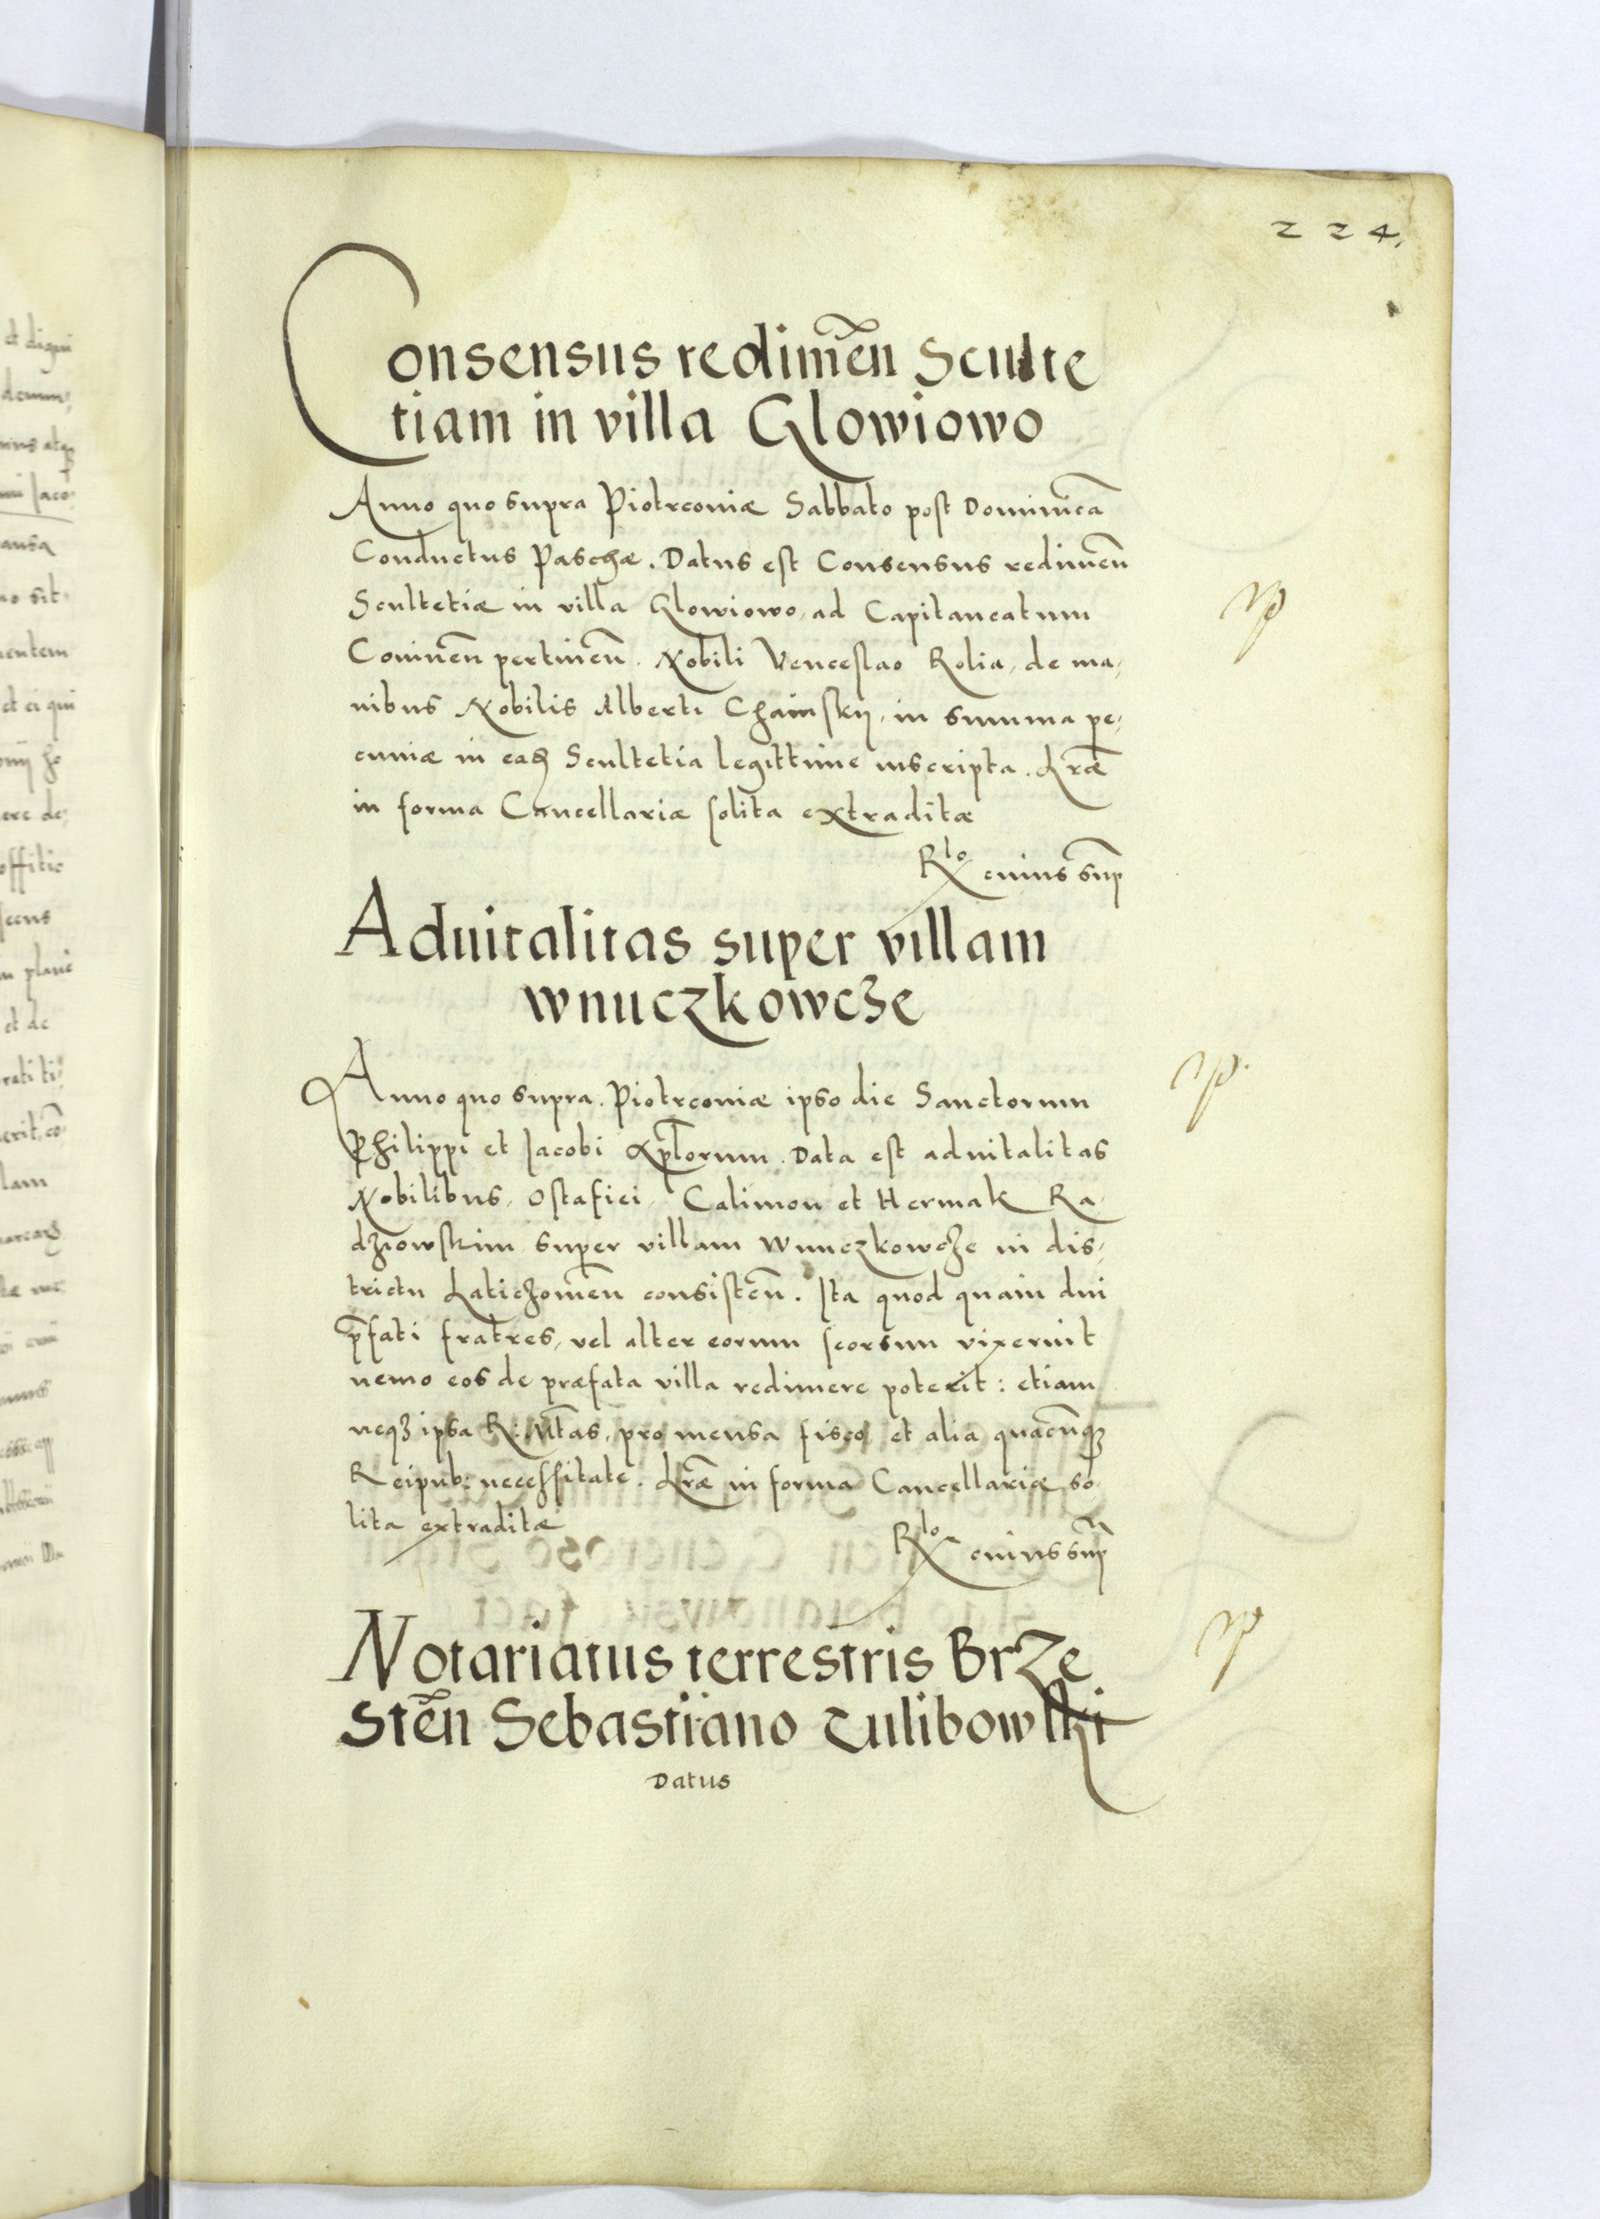 224.
Consensus redimeñ Sculte
tiam in villa Glowiowo
Anno quo supra Piotrconiæ Sabbato post Dominicā
Conductus Paschæ. Datus est Consensus redimeñ
Scultetiæ in villa Glowiowo, ad Capitaneatum
Conineñ pertineñ. Nobili Venceslao Rolia, de ma,
nibus Nobilis Alberti Chainskij, in summa pe,
cuniæ in eadē Scultetia legittime inscripta. Lræ
in forma Cancellariæ solita extraditæ
Rlo cuius sup
Aduitalitas super villam
wnuczkowcze
Anno quo supra. Piotrconiæ ipso die Sanctorum
Philippi et Jacobi Aplorum. Data est aduitalitas
Nobilibus, Ostafiei, Calimon et Hermak Ra
dziowskim super villam Wnuczkowcze in dis,
trictu Laticzowieñ consisteñ. Ita quod quam diu
pfati fratres, vel alter eorum seorsim vixerint
nemo eos de præfata villa redimere poterit: etiam
neqz ipsa R: Mtas, pro mensa fisco et alia quacunqz
Reipub: necessitate. Lræ in forma Cancellariæ so
lita extraditæ
Rlo cuius sup
Notariatus terrestris Brze
steñ Sebastiano Tulibowski
Datus